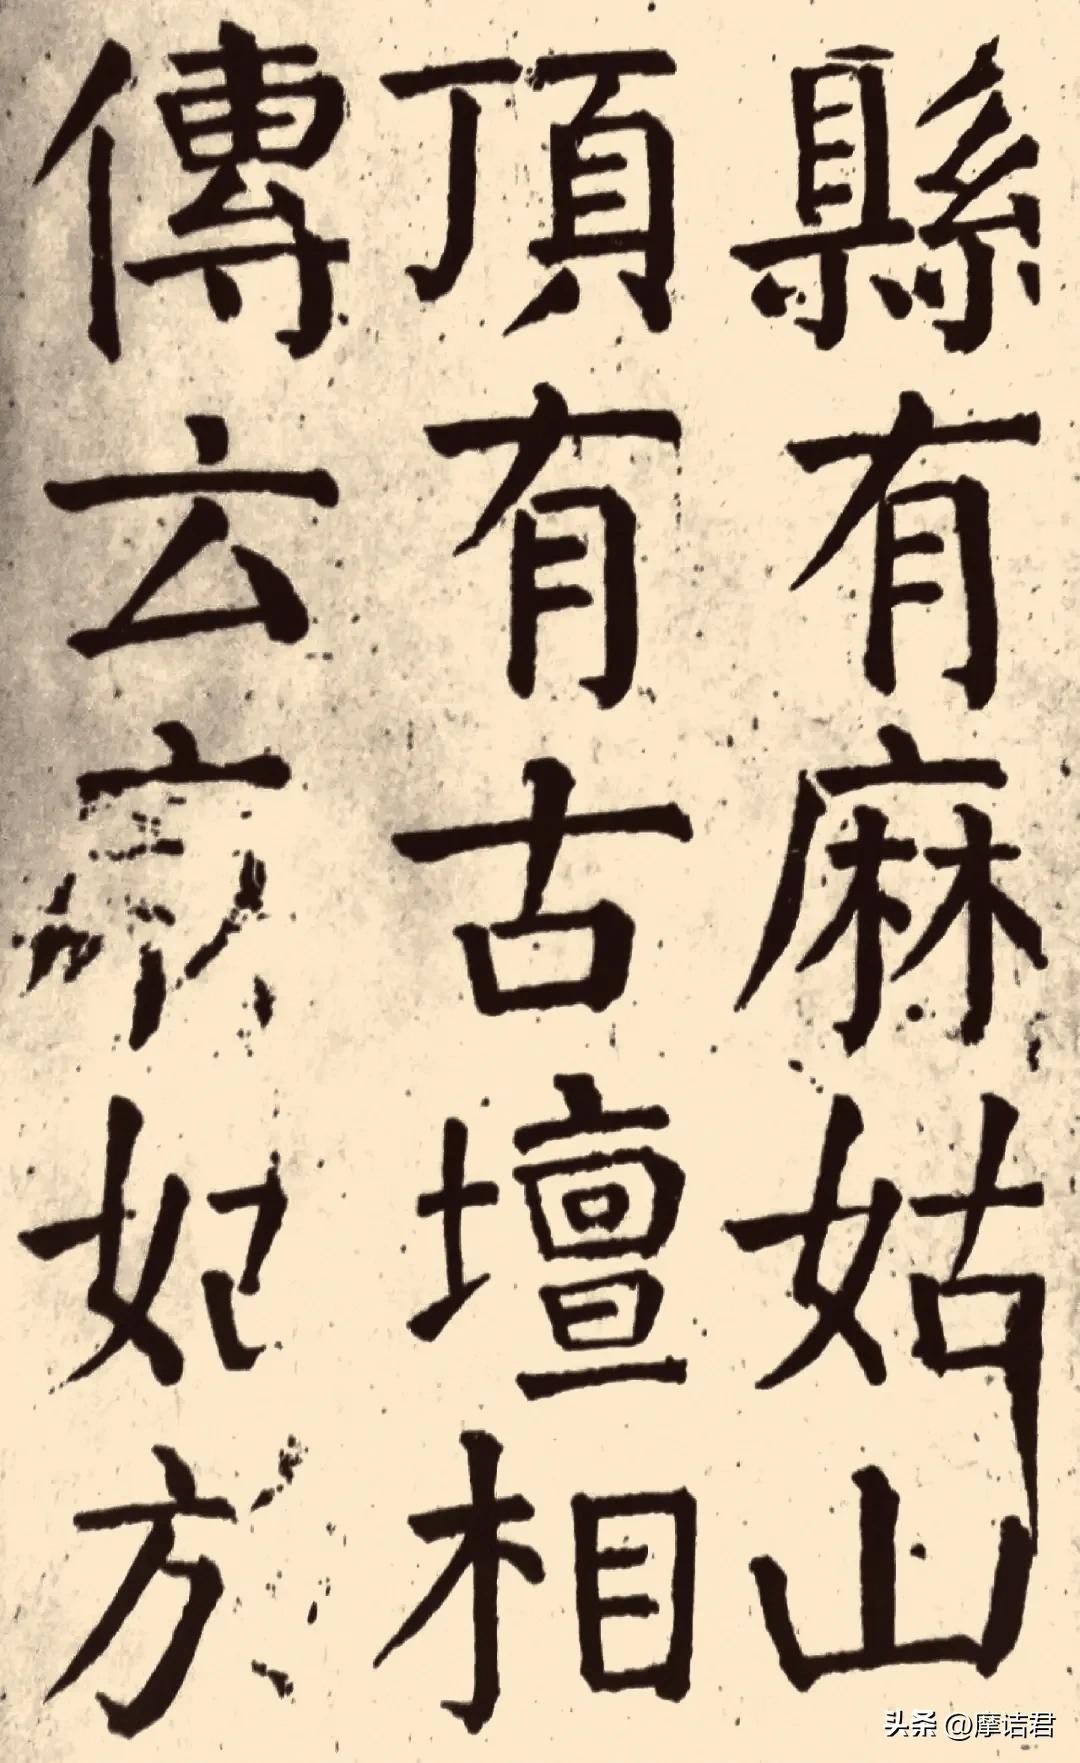 縣有麻姑山
頂有古壇相
傳云
头条 @摩诘君